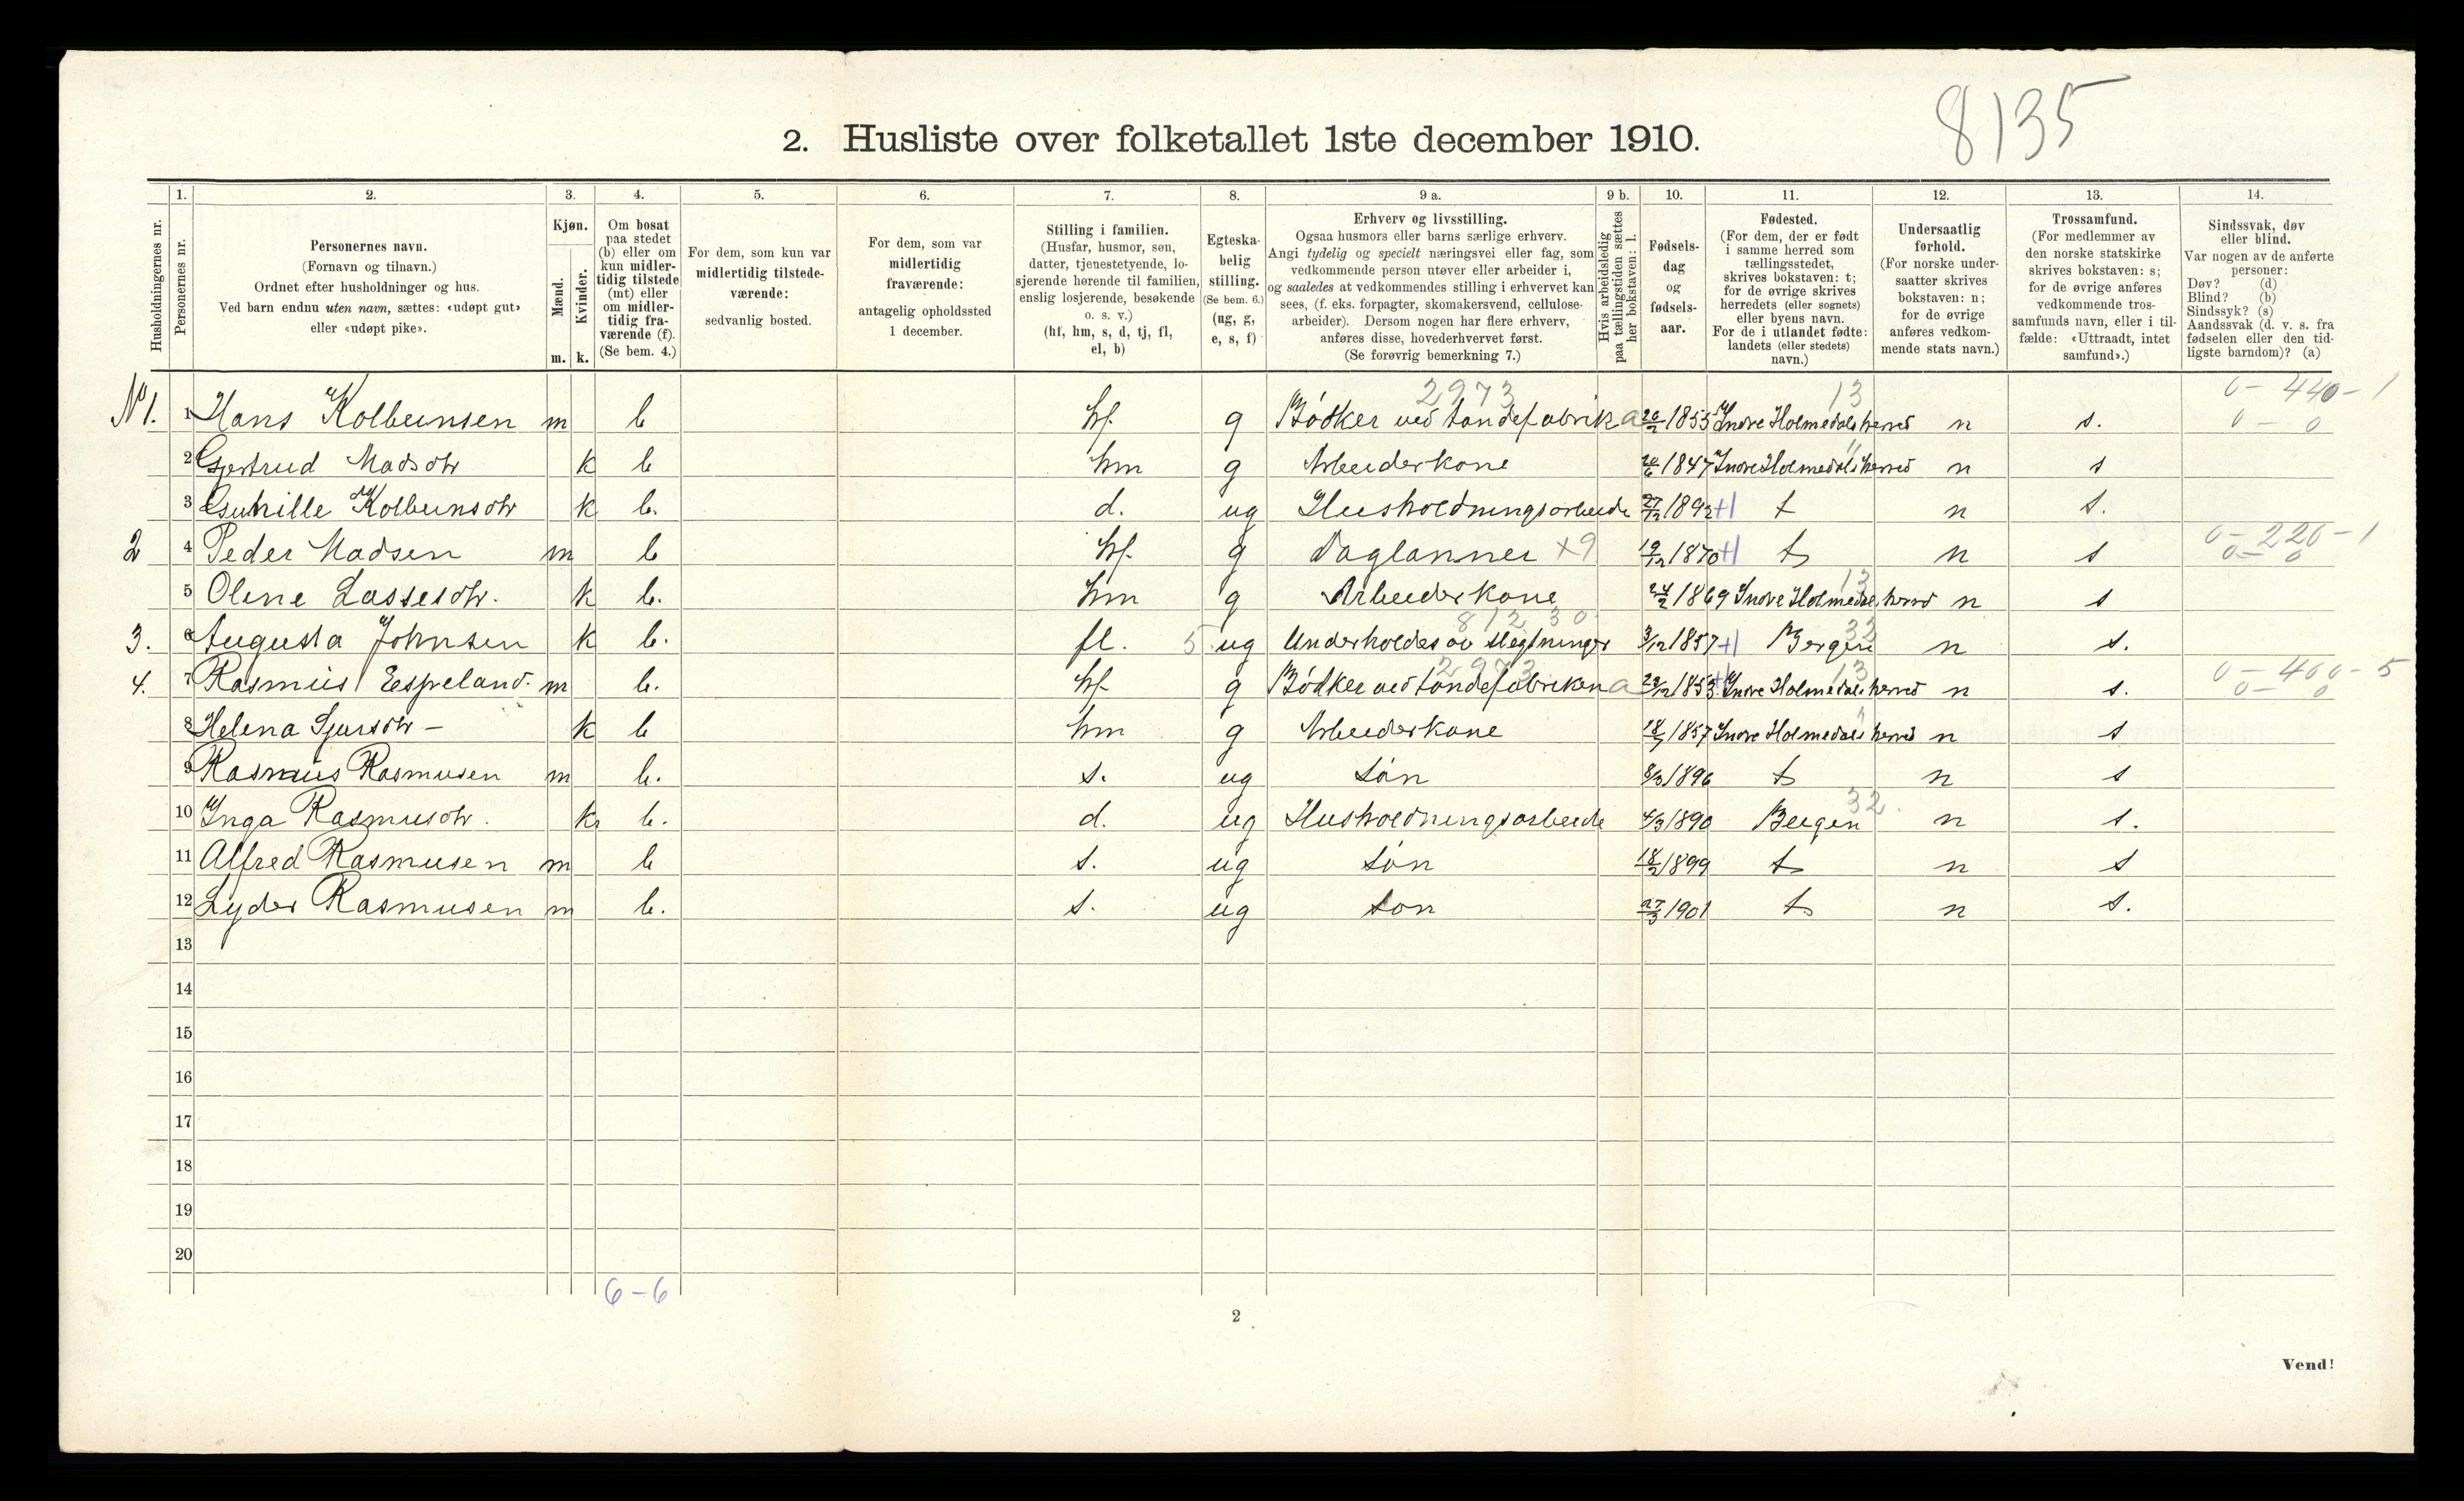 8135
2. Husliste over folketallet 1ste december 1910.
Husholdningernes nr.
1. Personernes nr.
2. Personernes navn.
(Fornavn og tilnavn.)
Ordnet efter husholdninger og hus.
Ved barn endnu uten navn, sættes: «udøpt gut»
eller «udøpt pike».
3. Kjøn.
Mænd. m.
Kvinder. k.
4. Om bosat
paa stedet
(b) eller om
kun midler-
tidig tilstede
(mt) eller
om midler-
tidig fra-
værende (f).
(Se bem. 4.)
5. For dem, som kun var
midlertidig tilstede-
værende:
sedvanlig bosted.
6. For dem, som var
midlertidig
fraværende:
antagelig opholdssted
1 december.
7. Stilling i familien.
(Husfar, husmor, søn,
datter, tjenestetyende, lo-
sjerende hørende til familien,
enslig losjerende, besøkende
o. s. v.)
(hf, hm, s, d, tj, fl,
el, b)
8. Egteska-
belig
stilling.
(Se bem. 6.)
(ug, g,
e, s, f)
9 a. Erhverv og livsstilling.
Ogsaa husmors eller barns særlige erhverv.
Angi tydelig og specielt næringsvei eller fag, som
vedkommende person utøver eller arbeider i,
og saaledes at vedkommendes stilling i erhvervet kan
sees, (f. eks. forpagter, skomakersvend, cellulose-
arbeider). Dersom nogen har flere erhverv,
anføres disse, hovederhvervet først.
(Se forøvrig bemerkning 7.)
9 b. Hvis arbeidsledig
paa tællingstiden sættes
her bokstaven: l.
10. Fødsels-
dag
og
fødsels-
aar.
11. Fødested.
(For dem, der er født
i samme herred som
tællingsstedet,
skrives bokstaven: t;
for de øvrige skrives
herredets (eller sognets)
eller byens navn.
For de i utlandet fødte:
landets (eller stedets)
navn.)
12. Undersaatlig
forhold.
(For norske under-
saatter skrives
bokstaven: n;
for de øvrige
anføres vedkom-
mende stats navn.)
13. Trossamfund.
(For medlemmer av
den norske statskirke
skrives bokstaven: s;
for de øvrige anføres
vedkommende tros-
samfunds navn, eller i til-
fælde: «Uttraadt, intet
samfund».)
14. Sindssvak, døv
eller blind.
Var nogen av de anførte
personer:
Døv? (d)
Blind? (b)
Sindssyk? (s)
Aandssvak (d. v. s. fra
fødselen eller den tid-
ligste barndom)? (a)
2973 13 0 - 440 - 1
No 1. 1 Hans Kolbeinsen m b hf. g Bødker ved tøndefabrik a 1855 Indre Holmedals herred n s. 0 - 0
2 Gjertrud Madsdtr k b hm g Arbeiderkone 20/6 1847 " Indre Holmedals herred n s
3 Gunhille Kolbeinsdtr k b. d. ug Husholdningsarbeide 27/12 1892 +1 t n s.
2 4 Peder Madsen m b hf. g Daglønner ×9 19/12 1870 +1 t n s 0 - 220 - 1 0 - 0
5 Oline Lassesdtr. k b. hm g Arbeiderkone 24/2 1869 Indre Holmedals herred 13 n s
3. 6 Augusta Johnsen k b. fl. 5 ug Underholdes av slegtninger 812 30 3/12 1857 +1 Bergen 32 n s.
4. 7 Rasmus Espeland. m b. hf g Bødker ved tøndefabriken 2973 a 1853 +1 Indre Holmedals herred 13 n s. 0 - 400 - 5 0 - 0
8 Helena Sjursdtr - k b hm g Arbeiderkone 18/7 1857 Indre Holmedals herred " n s
9 Rasmus Rasmusen m b. s. ug søn 8/3 1896 t n s
10 Inga Rasmusdtr. k b. d. ug Husholdningsarbeide 4/3 1890 Bergen 32 n s.
11 Alfred Rasmusen m b s. ug søn 18/2 1899 t n s
12 Lyder Rasmusen m b. s. ug søn 27/3 1901 t n s.
13
14
15
16
17
18
19
20
6 - 6
2
Vend!